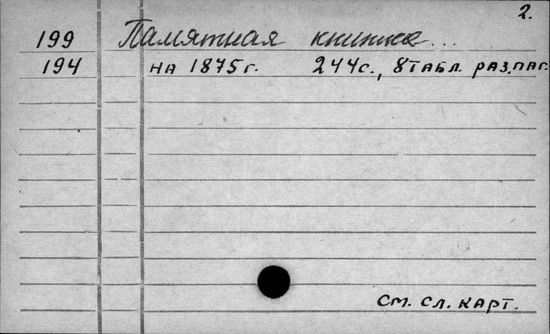 2.
199 Памятная книжка...
194 на 1875 г. 244 с., 8 табл. раз. паг.
См. сл. карт.